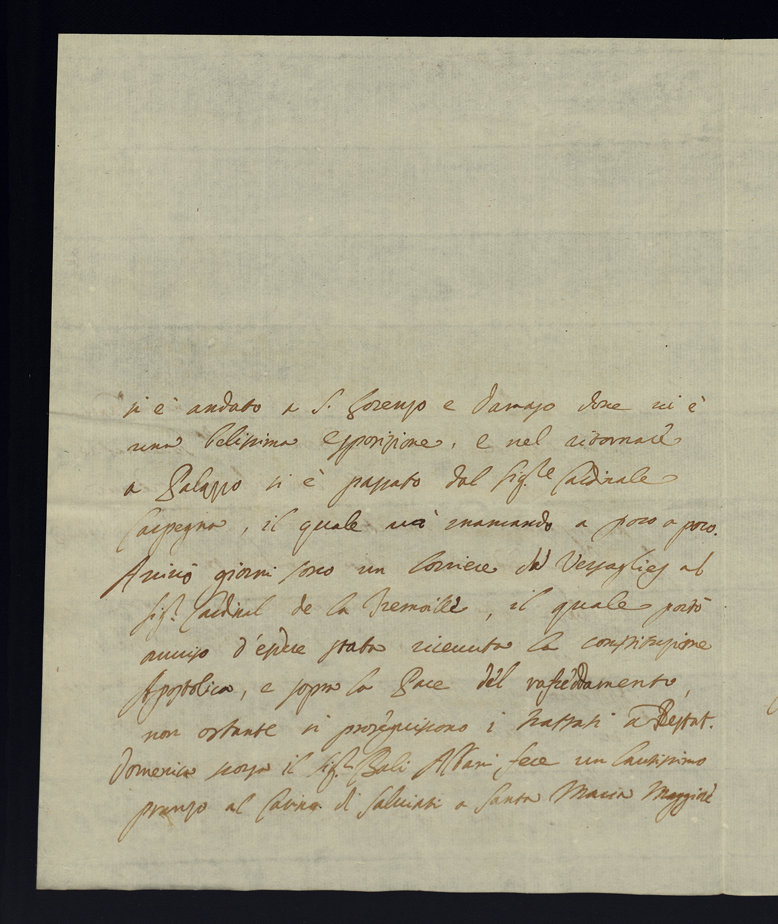 si è andato a S. Lorenzo e Damaso dove vi è
una belissima Esposizione, e nel ritornare
a Palazzo si è passato dal Sig.le Cardinale
Carpegna, il quale và mancando a poco a poco.
Arivò giorni sono un Corriere da Versaglies al
Sig.r Cardinal de la Tremoille, il quale portò
auuiso d'essere stata riceuuta la constituzione
Apostolica, e sopra la Pace del rafreddamento,
non ostante si proseguiscono i trattati a Restat.
Domenica scorsa il Sig.r Bali fece un lautissimo
pranzo al di Salviati a Santa Maria Maggiore